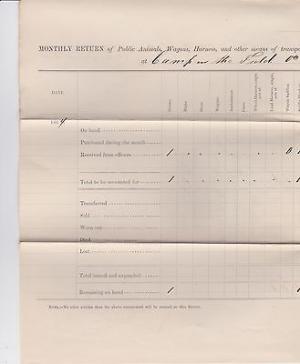 MONTHLY RETURN of Public Animals, Wagons, Harness, and other means of transpo
at Camp in the Field
DATE.
Horses.
Mules.
Oxen.
Wagons.
Ambulances.
Carts.
186 4
On hand
Purchased during the month
Received from officers 1 0 1
Total to be accounted for 1 1
Transferred
Sold
Worn out
Died
Lost
Total issued and expended
Remaining on hand 1
NOTE.—No other articles than the above enumerated will be entered on this Return.